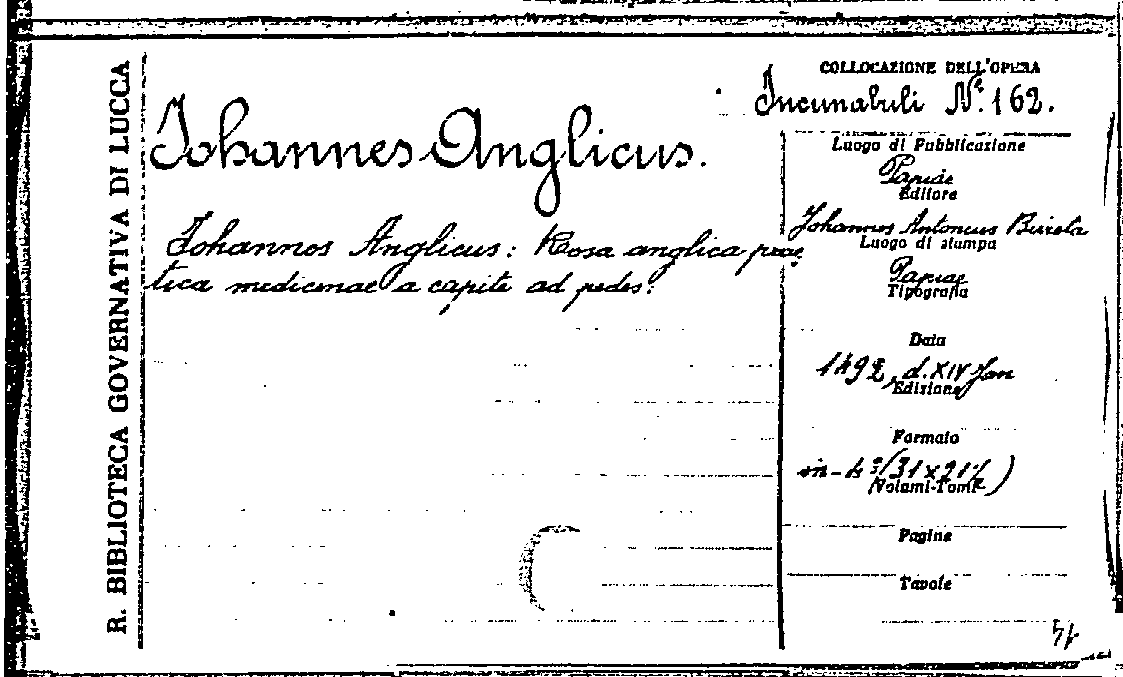 R. BIBLIOTECA GOVERNATIVA DI LUCCA
Johannes Anglicus.
Johannes Anglicus: Rosa anglica prac
tica medicinae a capite ad pedes.
COLLOCAZIONE DELL'OPERA
Incunabuli N.º 162.
Luogo di Pubblicazione
Papiae
Editore
Johannes Antonius Birreta
Luogo di stampa
Papiae
Tipografia
Data
1492, d. XIV Jan
Edizione
Formato
in-4º (31 x 21½)
Volumi-Tomi
Pagine
Tavole